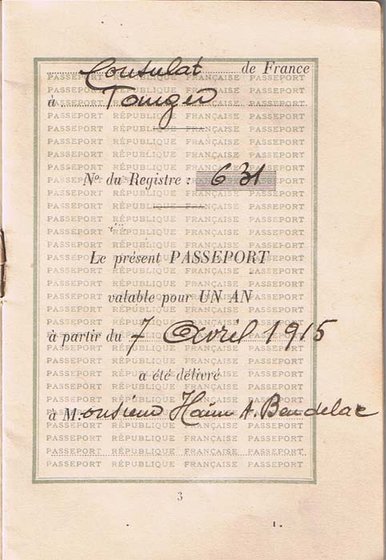 Consulat de France
à Tanger
N° du Registre : 631
Le présent PASSEPORT
valable pour UN AN
à partir du 7 Avril 1915
a été délivré
à Monsieur Haim A. Bendelac
3
1.